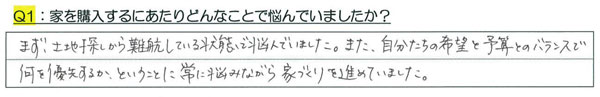 Q1：家を購入するにあたりどんなことで悩んでいましたか？
まず、土地探しから難航している状態で悩んでいました。また、自分たちの希望と予算とのバランスで
何を優先するか、ということに常に悩みながら家づくりを進めていました。